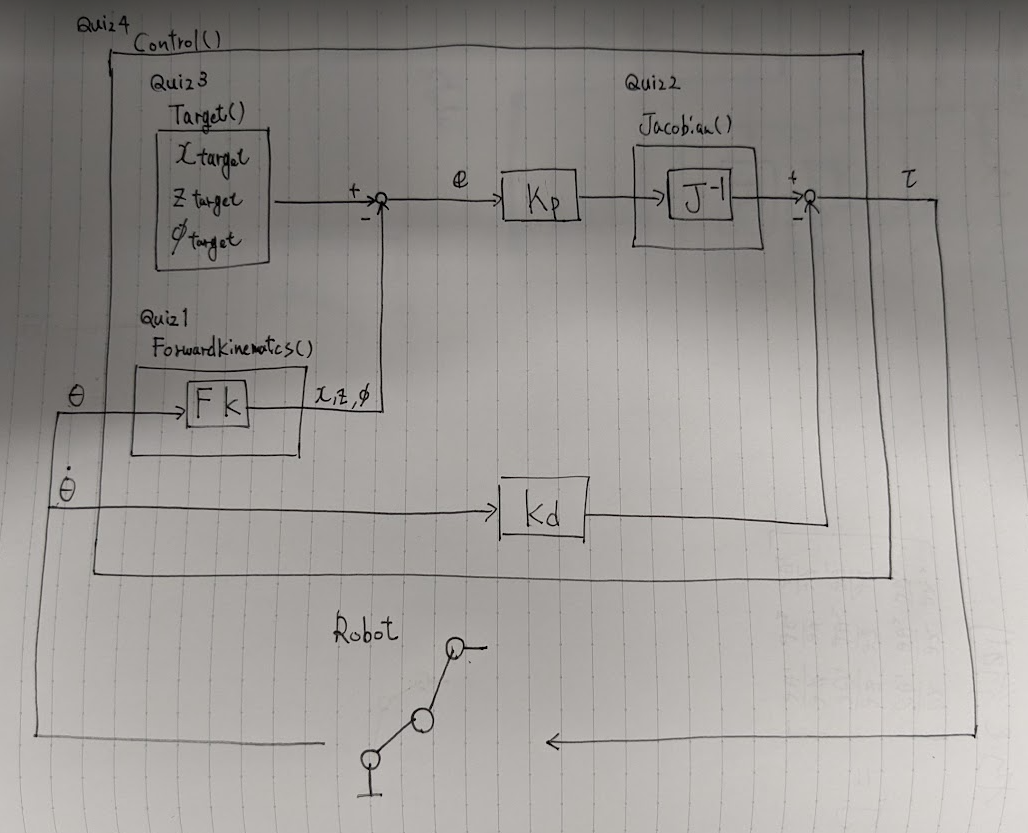 Quiz4
Control()
Quiz3
Target()
x target
z target
φ target
+
-
e
Kp
Quiz2
Jacobian()
J⁻¹
+
-
τ
Quiz1
ForwardKinematics()
θ
Fk
x,z,φ
θ̇
Kd
Robot